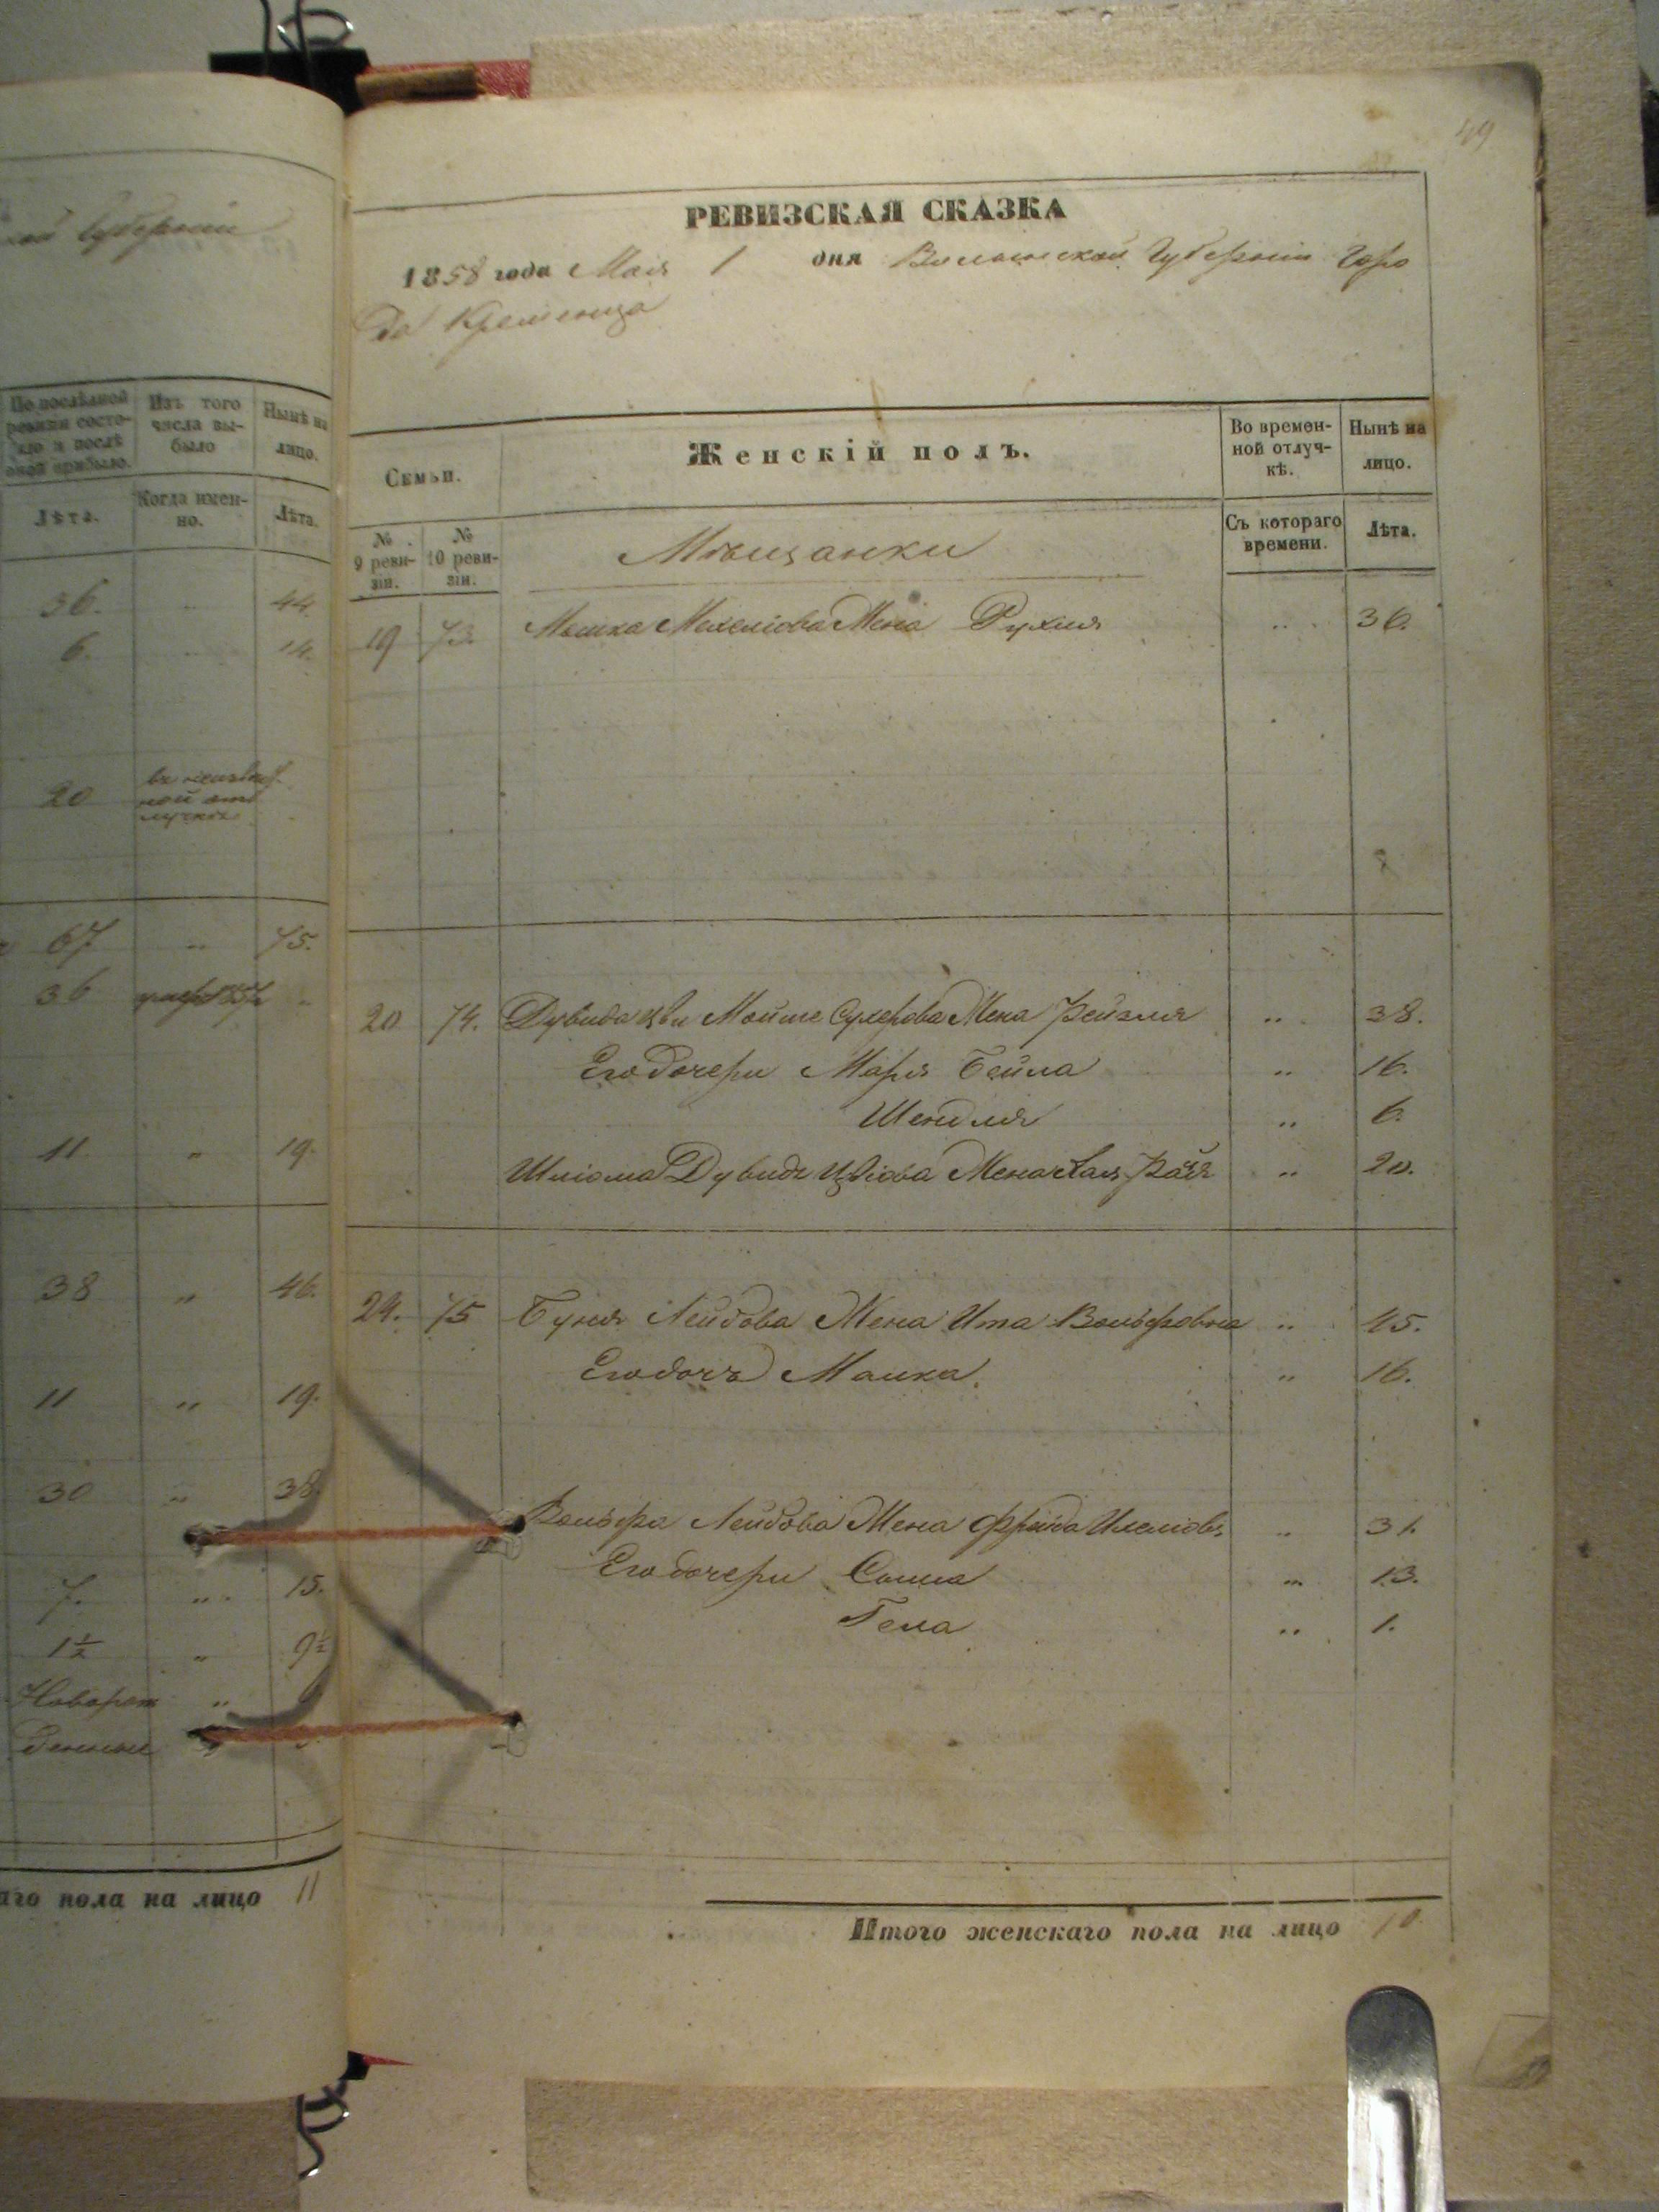 губерніи
По последней ревизіи состояло и послѣ оной прибыло.
Изъ того числа выбыло
Нынѣ на лицо.
Лѣта.
Когда имен-
но.
Лѣта.
36. „ 44.
6. „ 14.
20
67 „ 75.
36
11 „ 19.
38 „ 46.
11 „ 19.
30 „ 38.
7. „ 15.
1½ „ 9½
Новорож „
денные
аго пола на лицо 11
49
РЕВИЗСКАЯ СКАЗКА
1858 года Мая 1 дня Волынской Губерніи Горо
да Кременца
Семьи.
Женскій полъ.
Во времен-
ной отлуч-
кѣ.
Нынѣ на
лицо.
№
9 реви-
зіи.
№
10 реви-
зіи.
Мѣщанки
Съ котораго
времени.
Лѣта.
19 73. Мошка Мехеліова Жена Рухля „ 36.
20 74. Дувида Цви Мойше Сухерова Жена Рейзля „ 38.
Его дочери Маря Бейла „ 16.
Шендля „ 6.
Шліома Дувидъ Цвіова Жена Хая „ 20.
24. 75 Буня Лейбова Жена Ита Вольфовна „ 45.
Его дочь Малка „ 16.
Вольфа Лейбова Жена Фрейда „ 31.
Его дочери „ 13.
Гела „ 1.
Итого женскаго пола на лицо 10.